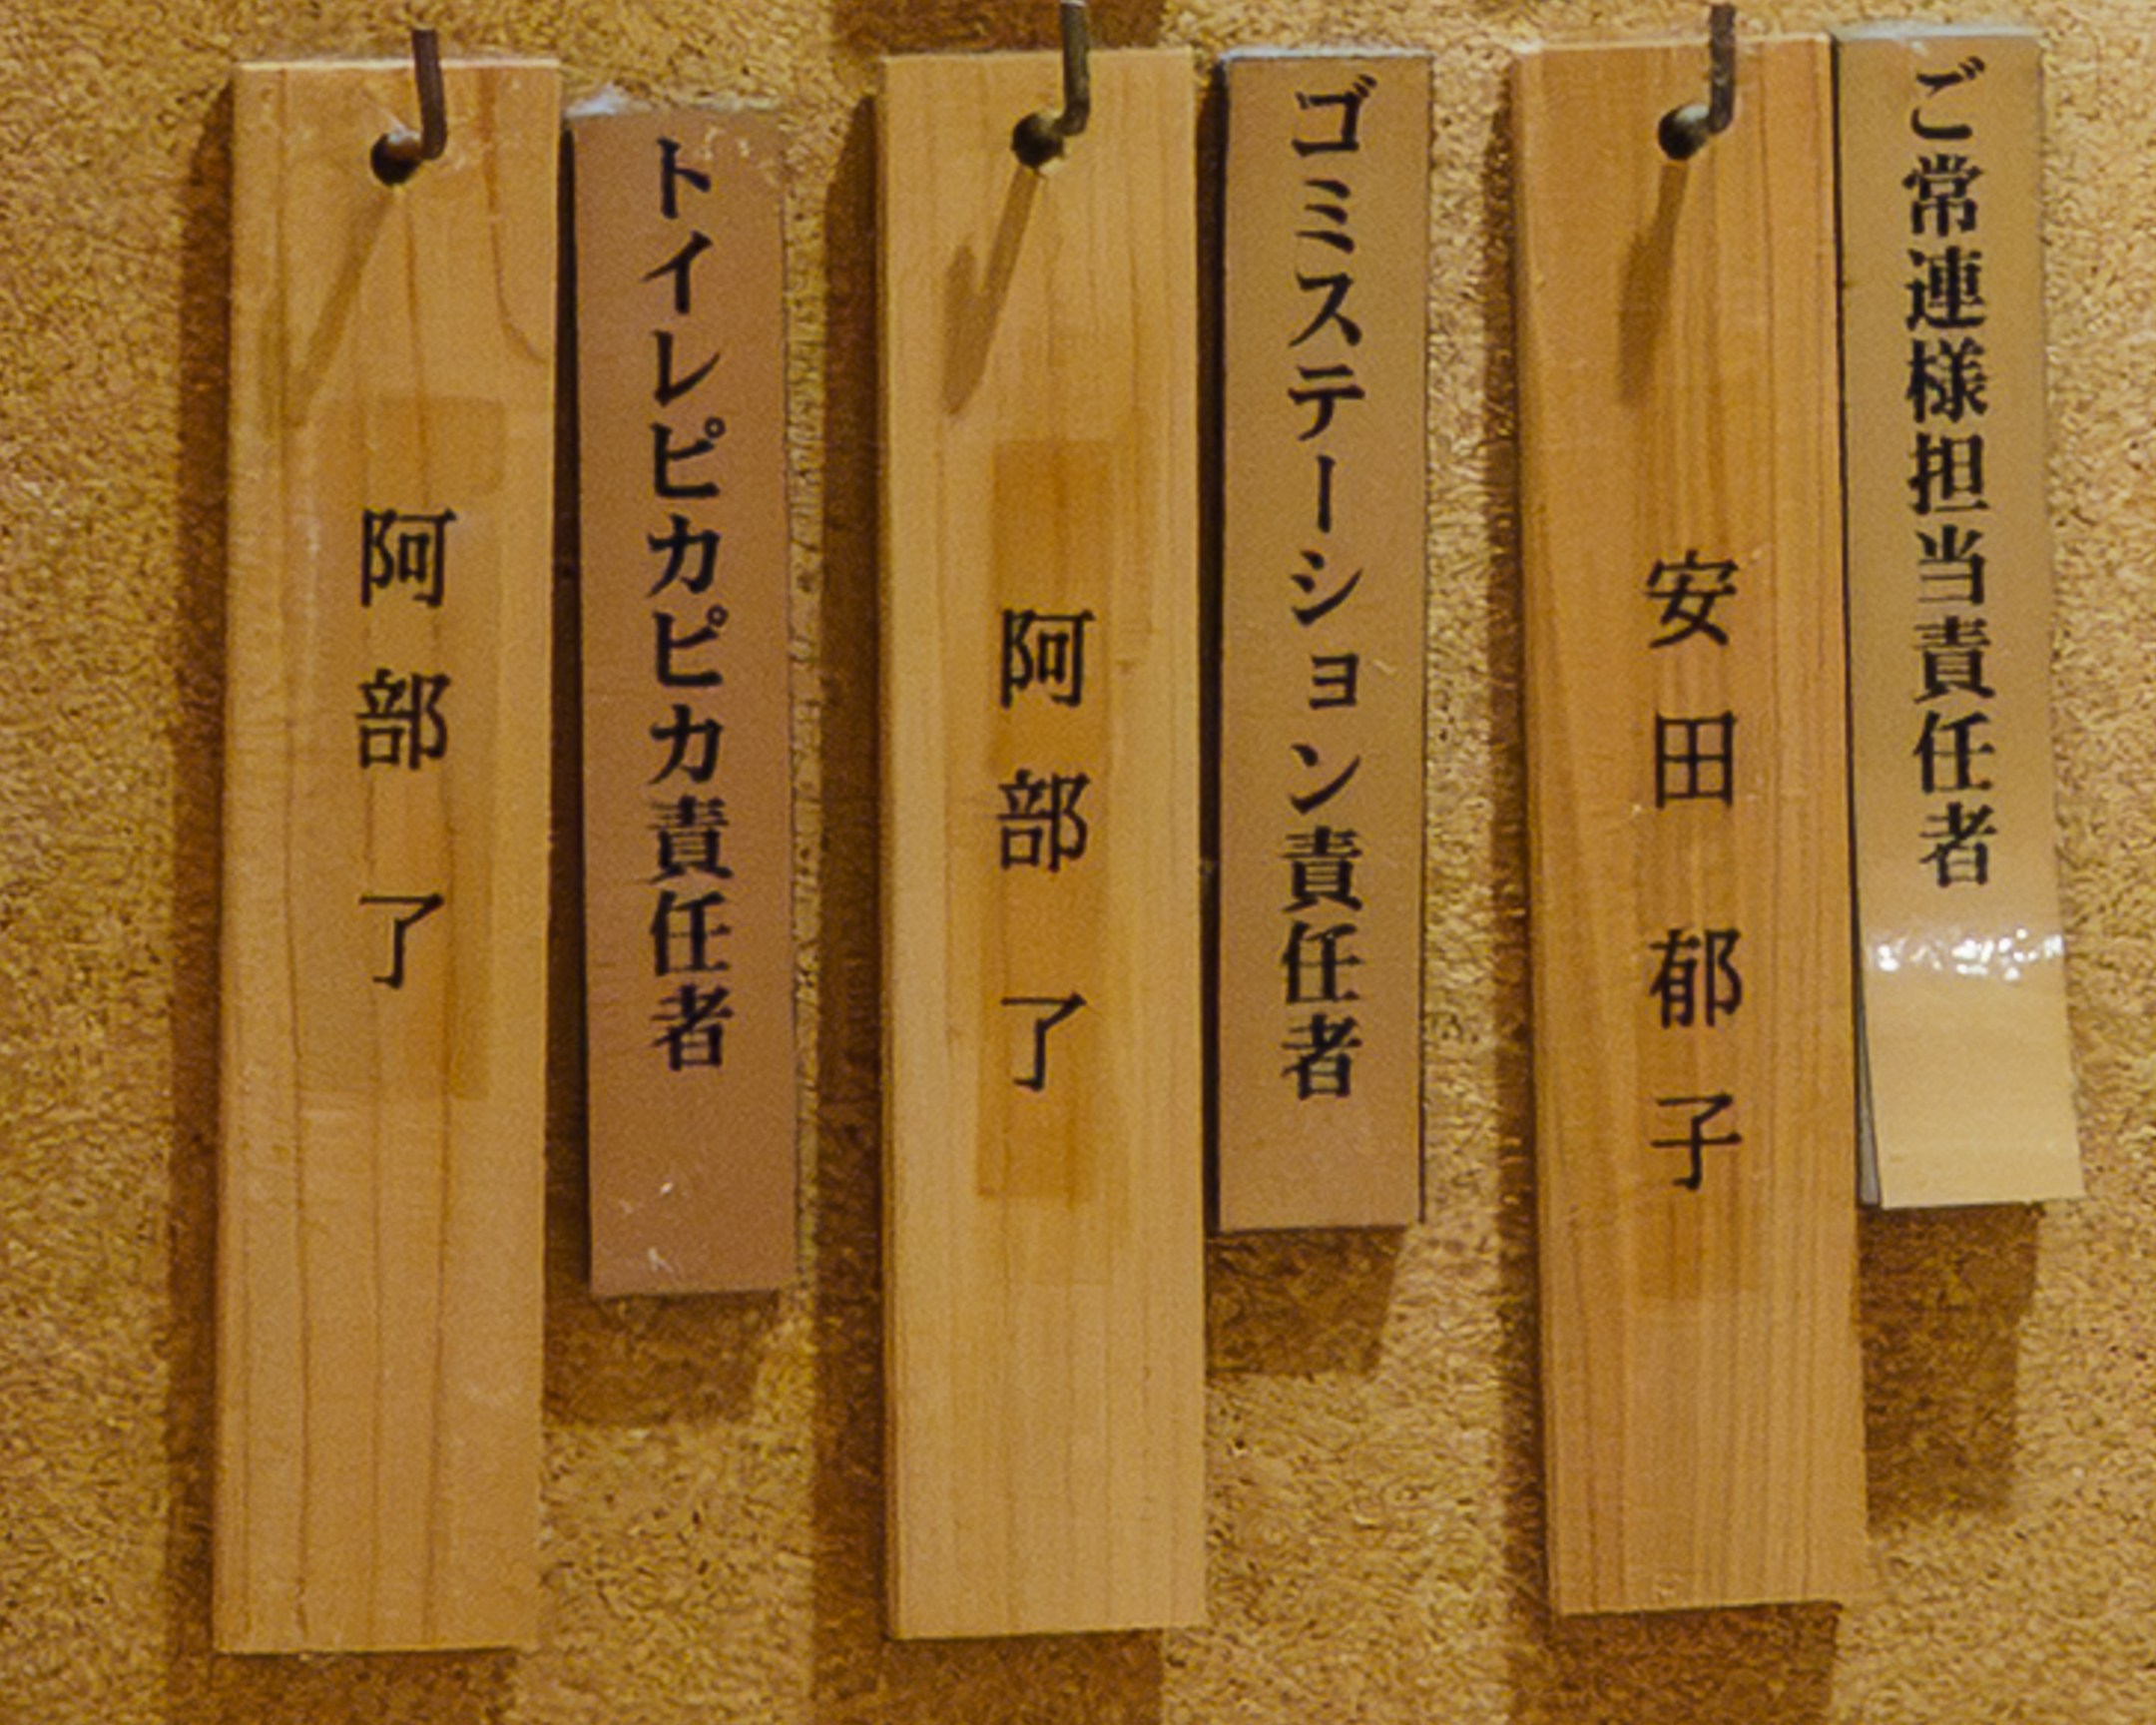 ご常連様担当責任者
安田 郁子
ゴミステーション責任者
阿部 了
トイレピカピカ責任者
阿部 了